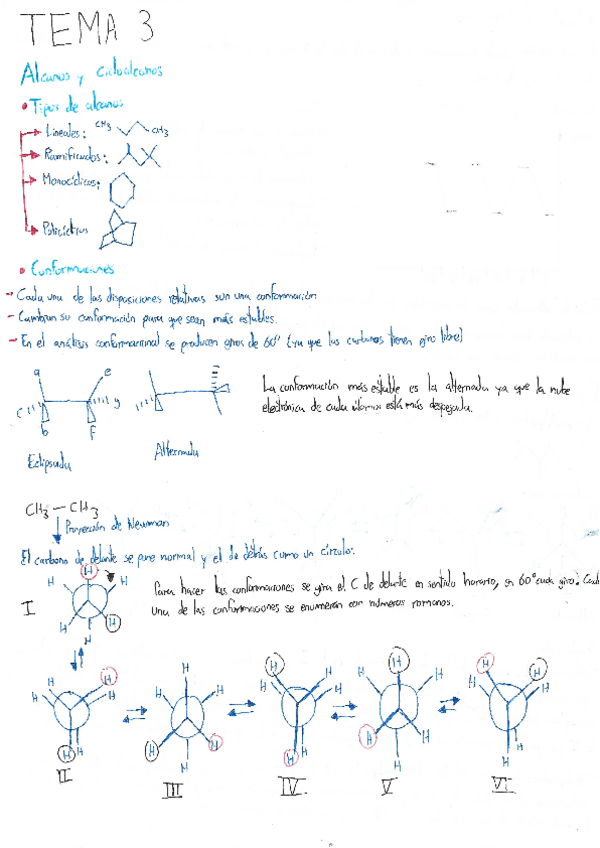 TEMA 3
Alcanos y cicloalcanos
• Tipos de alcanos
→ Lineales: CH3 CH3
→ Ramificados:
→ Monocíclicos:
→ Policíclicos
• Conformaciones
→ Cada una de las disposiciones relativas son una conformación
→ Cambian su conformación para que sean más estables.
→ En el análisis conformacional se producen giros de 60° (ya que los carbonos tienen giro libre)
a e
c y
b f
La conformación más estable es la alternada ya que la nube
electrónica de cada átomo está más despejada.
Eclipsada Alternada
CH3 — CH3
Proyección de Newman
El carbono de delante se pone normal y el de detrás como un círculo.
H H H
Para hacer las conformaciones se gira el C de delante en sentido horario, en 60° cada giro. Cada
una de las conformaciones se enumeran con números romanos.
I
H H H
H H H H H H
H H H H H H
H H H H H H
H H H H H H
H H H H H H
II III IV V VI